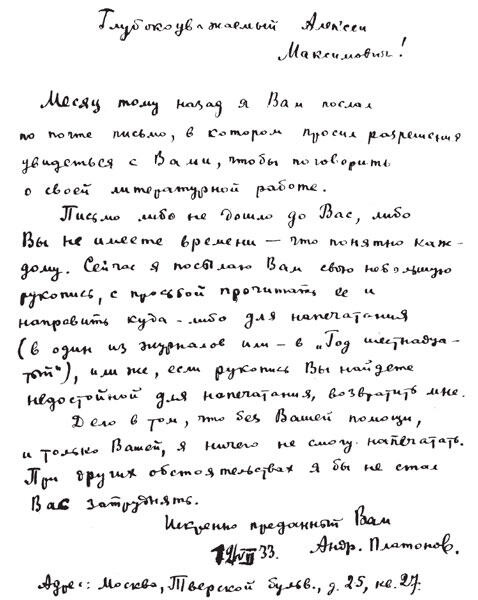 Глубокоуважаемый Алексей
Максимович!
Месяц тому назад я Вам послал
по почте письмо, в котором просил разрешения
увидеться с Вами, чтобы поговорить
о своей литературной работе.
Письмо либо не дошло до Вас, либо
Вы не имеете времени — что понятно каж-
дому. Сейчас я посылаю Вам свою небольшую
рукопись, с просьбой прочитать ее и
направить куда-либо для напечатания
(в один из журналов или — в „Год шестнадца-
тый"), или же, если рукопись Вы найдете
недостойной для напечатания, возвратить мне.
Дело в том, что без Вашей помощи,
и только Вашей, я ничего не смогу напечатать.
При других обстоятельствах я бы не стал
Вас затруднять.
Искренно преданный Вам
Андр. Платонов.
33.
Адрес: Москва, Тверской бульв., д. 25, кв. 27.